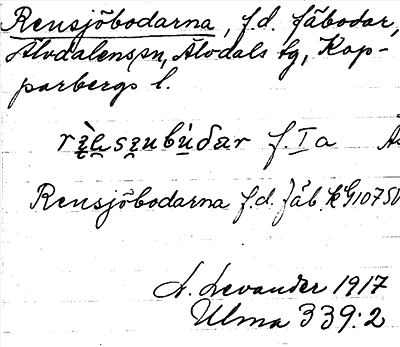 Rensjöbodarna, f.d. fäbodar,
Älvdalens sn, Älvdals tg, Kop-
parbergs l.
f. I a
Rensjöbodarna f.d. fäb. KG1075V
L. Levander 1917
Ulma 339:2